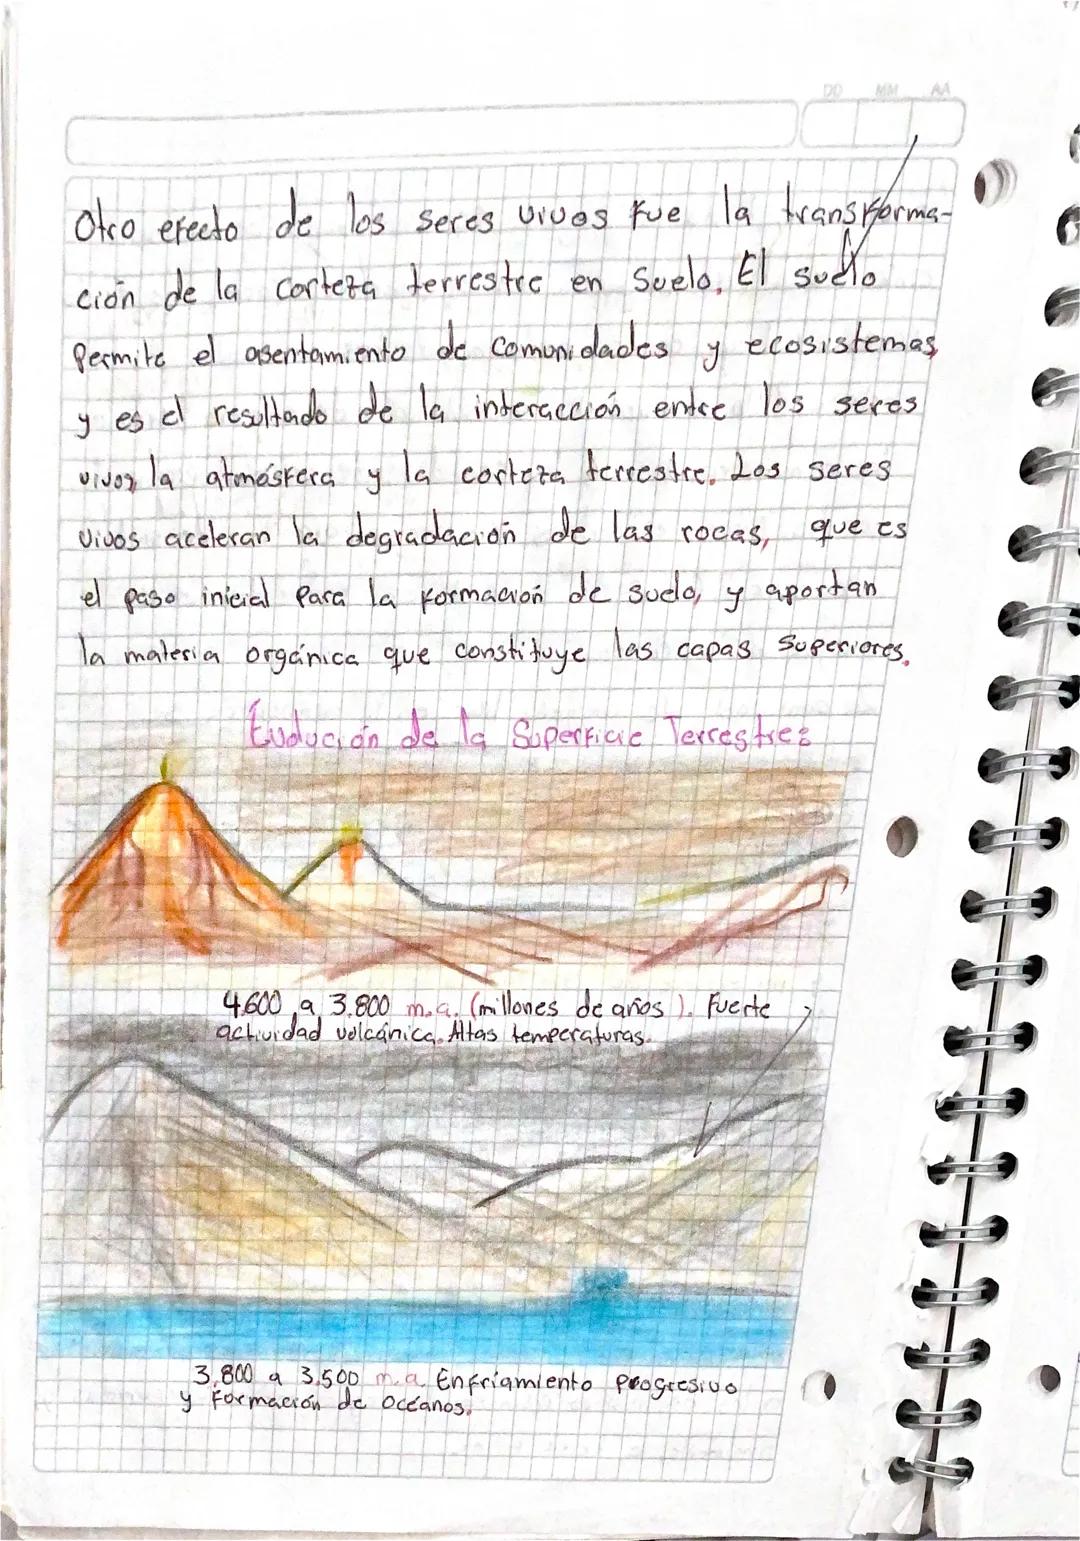 DD MM AA
Otro efecto de los seres vivos fue la transforma-
ción de la corteza terrestre en Suelo. El suelo
Permite el asentamiento de comunidades y ecosistemas,
y es el resultado de la interacción entre los seres
vivos, la atmósfera y la corteza terrestre. Los seres
vivos aceleran la degradación de las rocas, que es
el paso inicial para la formación de suelo, y aportan
la materia orgánica que constituye las capas Superiores.
Evolución de la Superficie Terrestre:
4.600 a 3.800 m.a. (millones de años). Fuerte
actividad volcánica. Altas temperaturas.
3.800 a 3.500 m.a. Enfriamiento progresivo
y Formación de Océanos.